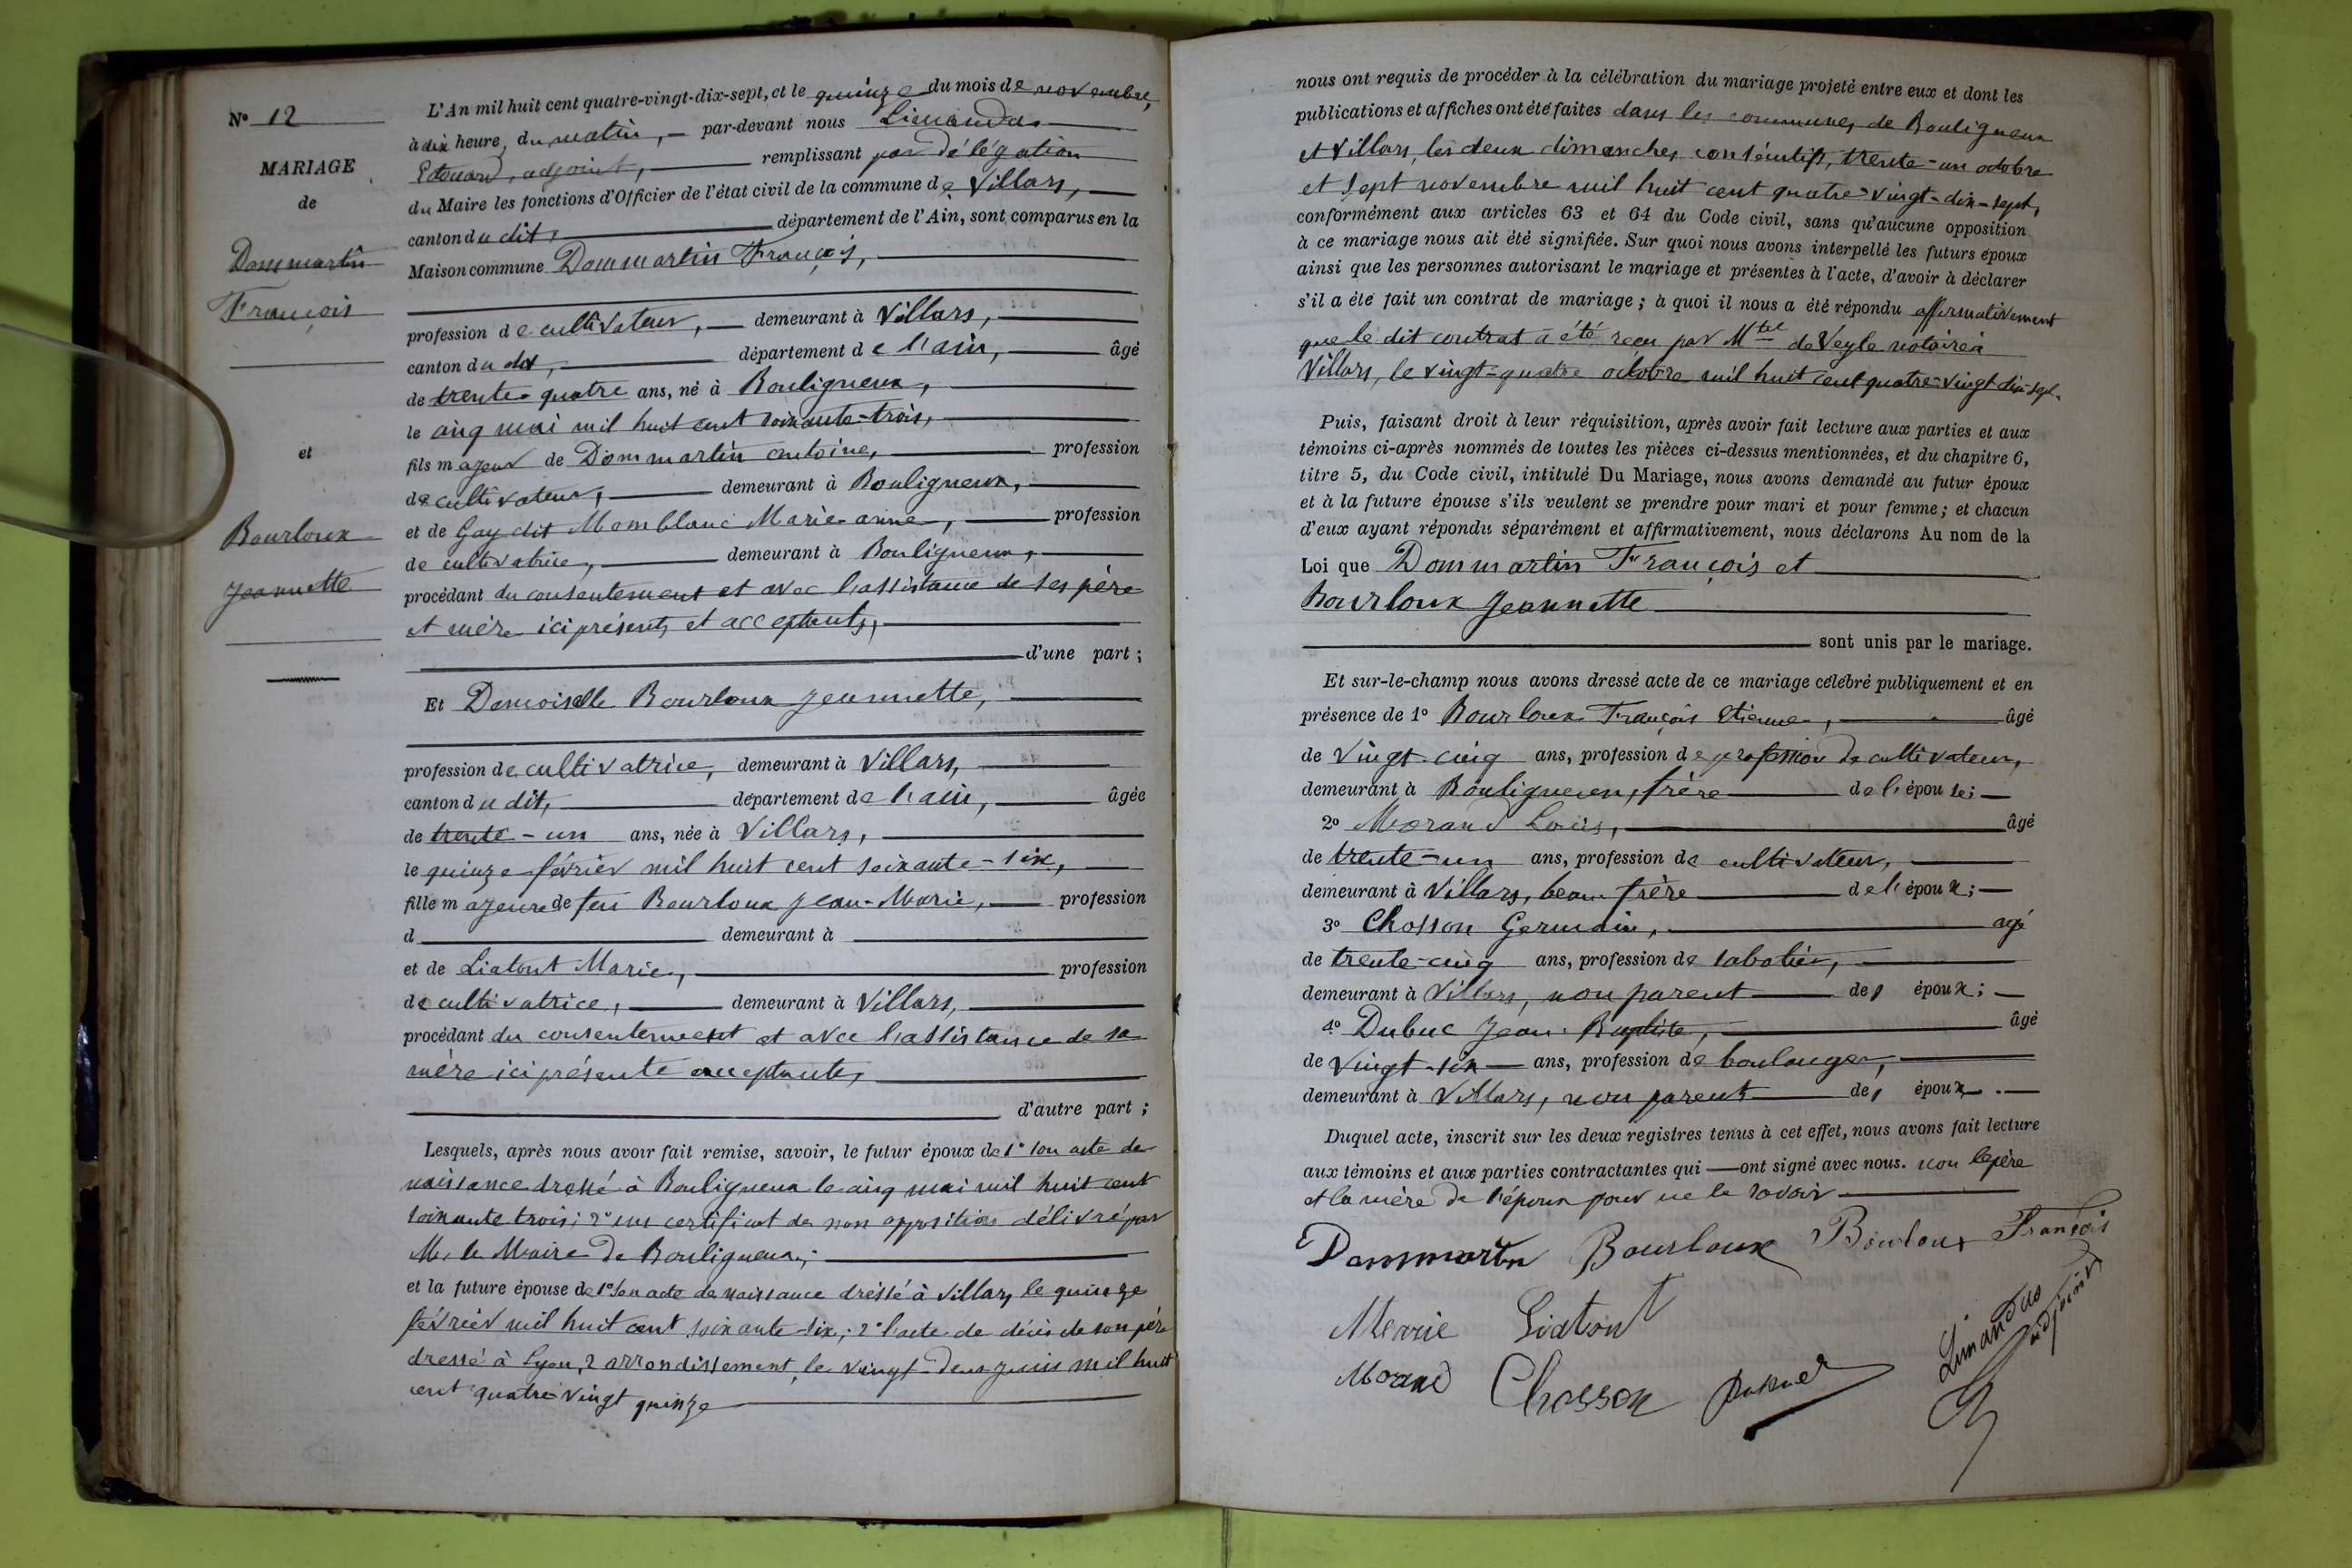 N° 12
MARIAGE
de
Dommartin
François
et
Bourloux
Jeannette
L'An mil huit cent quatre-vingt-dix-sept, et le quinze du mois de novembre,
à dix heure, du matin, par-devant nous Limandas
Edouard, adjoint, remplissant par délégation
du Maire les fonctions d'Officier de l'état civil de la commune de Villars,
canton du dit, département de l'Ain, sont comparus en la
Maison commune Dommartin François,
profession de cultivateur, demeurant à Villars,
canton du dit, département de l'ain, âgé
de trente-quatre ans, né à Bouligneux,
le cinq mai mil huit cent soixante-trois,
fils majeur de Dommartin antoine, profession
de cultivateur, demeurant à Bouligneux,
et de Gay dit Momblanc Marie anne, profession
de cultivatrice, demeurant à Bouligneux,
procédant du consentement et avec l'assistance de ses père
et mère ici présents et acceptants,
d'une part ;
Et Demoiselle Bourloux Jeannette,
profession de cultivatrice, demeurant à Villars,
canton du dit, département de l'ain, âgée
de trente-un ans, née à Villars,
le quinze février mil huit cent soixante-six,
fille majeure de feu Bourloux Jean-Marie, profession
d demeurant à
et de Liatout Marie, profession
de cultivatrice, demeurant à Villars,
procédant du consentement et avec l'assistance de sa
mère ici présente acceptante,
d'autre part ;
Lesquels, après nous avoir fait remise, savoir, le futur époux de 1° son acte de
naissance dressé à Bouligneux le cinq mai mil huit cent
soixante trois; 2° un certificat de non opposition délivré par
M. le Maire de Bouligneux;
et la future épouse de 1° son acte de naissance dressé à Villars le quinze
février mil huit cent soixante-six; 2° l'acte de décès de son père
dressé à Lyon, 2 arrondissement, le vingt-deux juin mil huit
cent quatre-vingt quinze
nous ont requis de procéder à la célébration du mariage projeté entre eux et dont les
publications et affiches ont été faites dans les communes de Bouligneux
et Villars, les deux dimanches consécutifs, trente-un octobre
et sept novembre mil huit cent quatre-vingt-dix-sept,
conformément aux articles 63 et 64 du Code civil, sans qu'aucune opposition
à ce mariage nous ait été signifiée. Sur quoi nous avons interpellé les futurs époux
ainsi que les personnes autorisant le mariage et présentes à l'acte, d'avoir à déclarer
s'il a été fait un contrat de mariage ; à quoi il nous a été répondu affirmativement
que le dit contrat a été reçu par Mtre de Veyle notaire à
Villars, le vingt-quatre octobre mil huit cent quatre-vingt dix-sept.
Puis, faisant droit à leur réquisition, après avoir fait lecture aux parties et aux
témoins ci-après nommés de toutes les pièces ci-dessus mentionnées, et du chapitre 6,
titre 5, du Code civil, intitulé Du Mariage, nous avons demandé au futur époux
et à la future épouse s'ils veulent se prendre pour mari et pour femme ; et chacun
d'eux ayant répondu séparément et affirmativement, nous déclarons Au nom de la
Loi que Dommartin François et
Bourloux Jeannette
sont unis par le mariage.
Et sur-le-champ nous avons dressé acte de ce mariage célébré publiquement et en
présence de 1° Bourloux François Etienne, âgé
de vingt-cinq ans, profession de profession de cultivateur,
demeurant à Bouligneux, frère de l'épouse;
2° Morand Louis, âgé
de trente-un ans, profession de cultivateur,
demeurant à Villars, beau frère de l'époux;
3° Chosson Germain, agé
de trente-cinq ans, profession de sabotier,
demeurant à Villars, non parent des époux;
4° Dubuc Jean-Baptiste, âgé
de vingt-six ans, profession de boulanger,
demeurant à Villars, non parent des époux.
Duquel acte, inscrit sur les deux registres tenus à cet effet, nous avons fait lecture
aux témoins et aux parties contractantes qui ont signé avec nous. non le père
et la mère de l'époux pour ne le savoir
Dommartin Bourloux Bourloux François
Marie Liatout
Morand Chosson
Limandas
adjoint